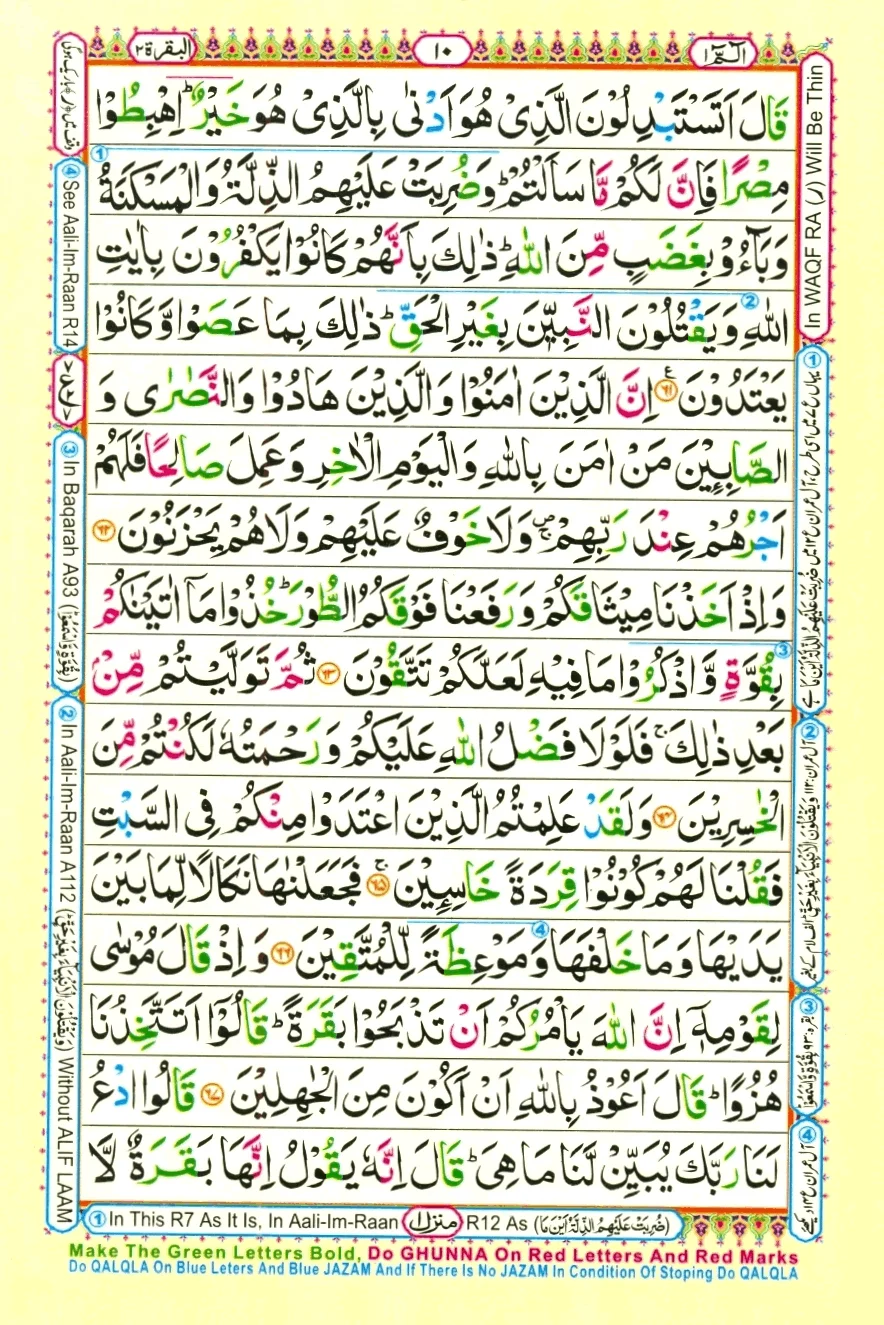 البقرة ٢
١٠
الٓمّٓ ١
قَالَ اَتَسْتَبْدِلُوْنَ الَّذِىْ هُوَ اَدْنٰى بِالَّذِىْ هُوَ خَيْرٌ ؕ اِهْبِطُوْا
مِصْرًا فَاِنَّ لَكُمْ مَّا سَاَلْتُمْ ؕ وَضُرِبَتْ عَلَيْهِمُ الذِّلَّةُ وَالْمَسْكَنَةُ
وَبَآءُوْ بِغَضَبٍ مِّنَ اللّٰهِ ؕ ذٰلِكَ بِاَنَّهُمْ كَانُوْا يَكْفُرُوْنَ بِاٰيٰتِ
اللّٰهِ وَيَقْتُلُوْنَ النَّبِيّٖنَ بِغَيْرِ الْحَقِّ ؕ ذٰلِكَ بِمَا عَصَوْا وَّكَانُوْا
يَعْتَدُوْنَ ۝٦١ اِنَّ الَّذِيْنَ اٰمَنُوْا وَالَّذِيْنَ هَادُوْا وَالنَّصٰرٰى وَ
الصَّابِـِٕيْنَ مَنْ اٰمَنَ بِاللّٰهِ وَالْيَوْمِ الْاٰخِرِ وَعَمِلَ صَالِحًا فَلَهُمْ
اَجْرُهُمْ عِنْدَ رَبِّهِمْ ۪ۚ وَلَا خَوْفٌ عَلَيْهِمْ وَلَا هُمْ يَحْزَنُوْنَ ۝٦٢
وَاِذْ اَخَذْنَا مِيْثَاقَكُمْ وَرَفَعْنَا فَوْقَكُمُ الطُّوْرَ ؕ خُذُوْا مَآ اٰتَيْنٰكُمْ
بِقُوَّةٍ وَّاذْكُرُوْا مَا فِيْهِ لَعَلَّكُمْ تَتَّقُوْنَ ۝٦٣ ثُمَّ تَوَلَّيْتُمْ مِّنْۢ
بَعْدِ ذٰلِكَ ۚ فَلَوْلَا فَضْلُ اللّٰهِ عَلَيْكُمْ وَرَحْمَتُهٗ لَكُنْتُمْ مِّنَ
الْخٰسِرِيْنَ ۝٦٤ وَلَقَدْ عَلِمْتُمُ الَّذِيْنَ اعْتَدَوْا مِنْكُمْ فِى السَّبْتِ
فَقُلْنَا لَهُمْ كُوْنُوْا قِرَدَةً خَاسِـِٕيْنَ ۝٦٥ۚ فَجَعَلْنٰهَا نَكَالًا لِّمَا بَيْنَ
يَدَيْهَا وَمَا خَلْفَهَا وَمَوْعِظَةً لِّلْمُتَّقِيْنَ ۝٦٦ وَاِذْ قَالَ مُوْسٰى
لِقَوْمِهٖٓ اِنَّ اللّٰهَ يَاْمُرُكُمْ اَنْ تَذْبَحُوْا بَقَرَةً ؕ قَالُوْٓا اَتَتَّخِذُنَا
هُزُوًا ؕ قَالَ اَعُوْذُ بِاللّٰهِ اَنْ اَكُوْنَ مِنَ الْجٰهِلِيْنَ ۝٦٧ قَالُوا ادْعُ
لَنَا رَبَّكَ يُبَيِّنْ لَّنَا مَا هِىَ ؕ قَالَ اِنَّهٗ يَقُوْلُ اِنَّهَا بَقَرَةٌ لَّا
In WAQF RA (ر) Will Be Thin
④ See Aali-Im-Raan R14
③ In Baqarah A93 (بِقُوَّةٍ وَّاسْمَعُوْا)
② In Aali-Im-Raan A112 (وَيَقْتُلُوْنَ الْاَنْۢبِيَآءَ بِغَيْرِ حَقٍّ) Without ALIF LAAM
① In This R7 As It Is, In Aali-Im-Raan منزل ١ R12 As (ضُرِبَتْ عَلَيْهِمُ الذِّلَّةُ اَيْنَ مَا)
Make The Green Letters Bold, Do GHUNNA On Red Letters And Red Marks
Do QALQLA On Blue Leters And Blue JAZAM And If There Is No JAZAM In Condition Of Stoping Do QALQLA